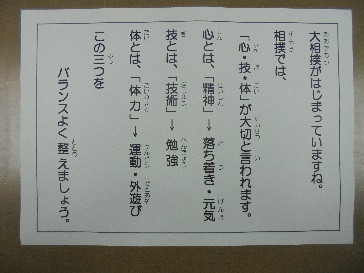 大相撲がはじまっていますね。
相撲では、
「心・技・体」が大切と言われます。
心とは、「精神」→落ち着き・元気
技とは、「技術」→勉強
体とは、「体力」→運動・外遊び
この三つを
バランスよく整えましょう。